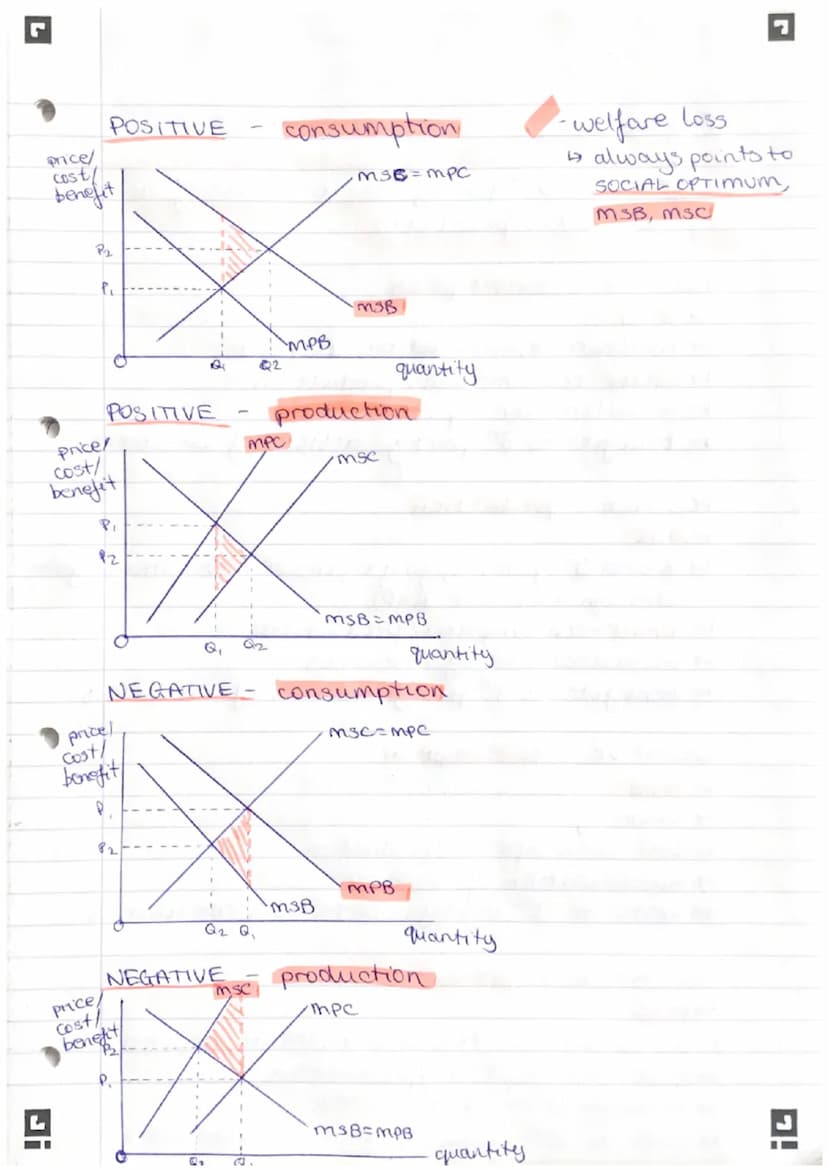 POSITIVE - consumption
- welfare loss
↳ always points to
SOCIAL OPTIMUM,
MSB, MSC
price/
cost/
benefit
MSC = MPC
P2
P1
MSB
MPB
O
Q1
Q2
quantity
POSITIVE - production
MPC
price/
cost/
benefit
MSC
P1
P2
MSB = MPB
O
Q1
Q2
quantity
NEGATIVE - consumption
price/
cost/
benefit
MSC = MPC
P1
P2
MPB
MSB
O
Q2
Q1
quantity
NEGATIVE - production
MSC
price/
cost/
benefit
MPC
P2
P1
MSB = MPB
O
Q2
Q1
quantity